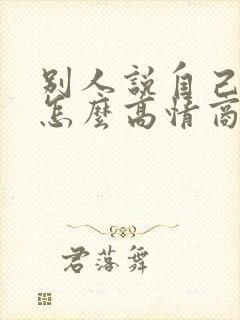 別人説自己
怎麼高情商
君落舞